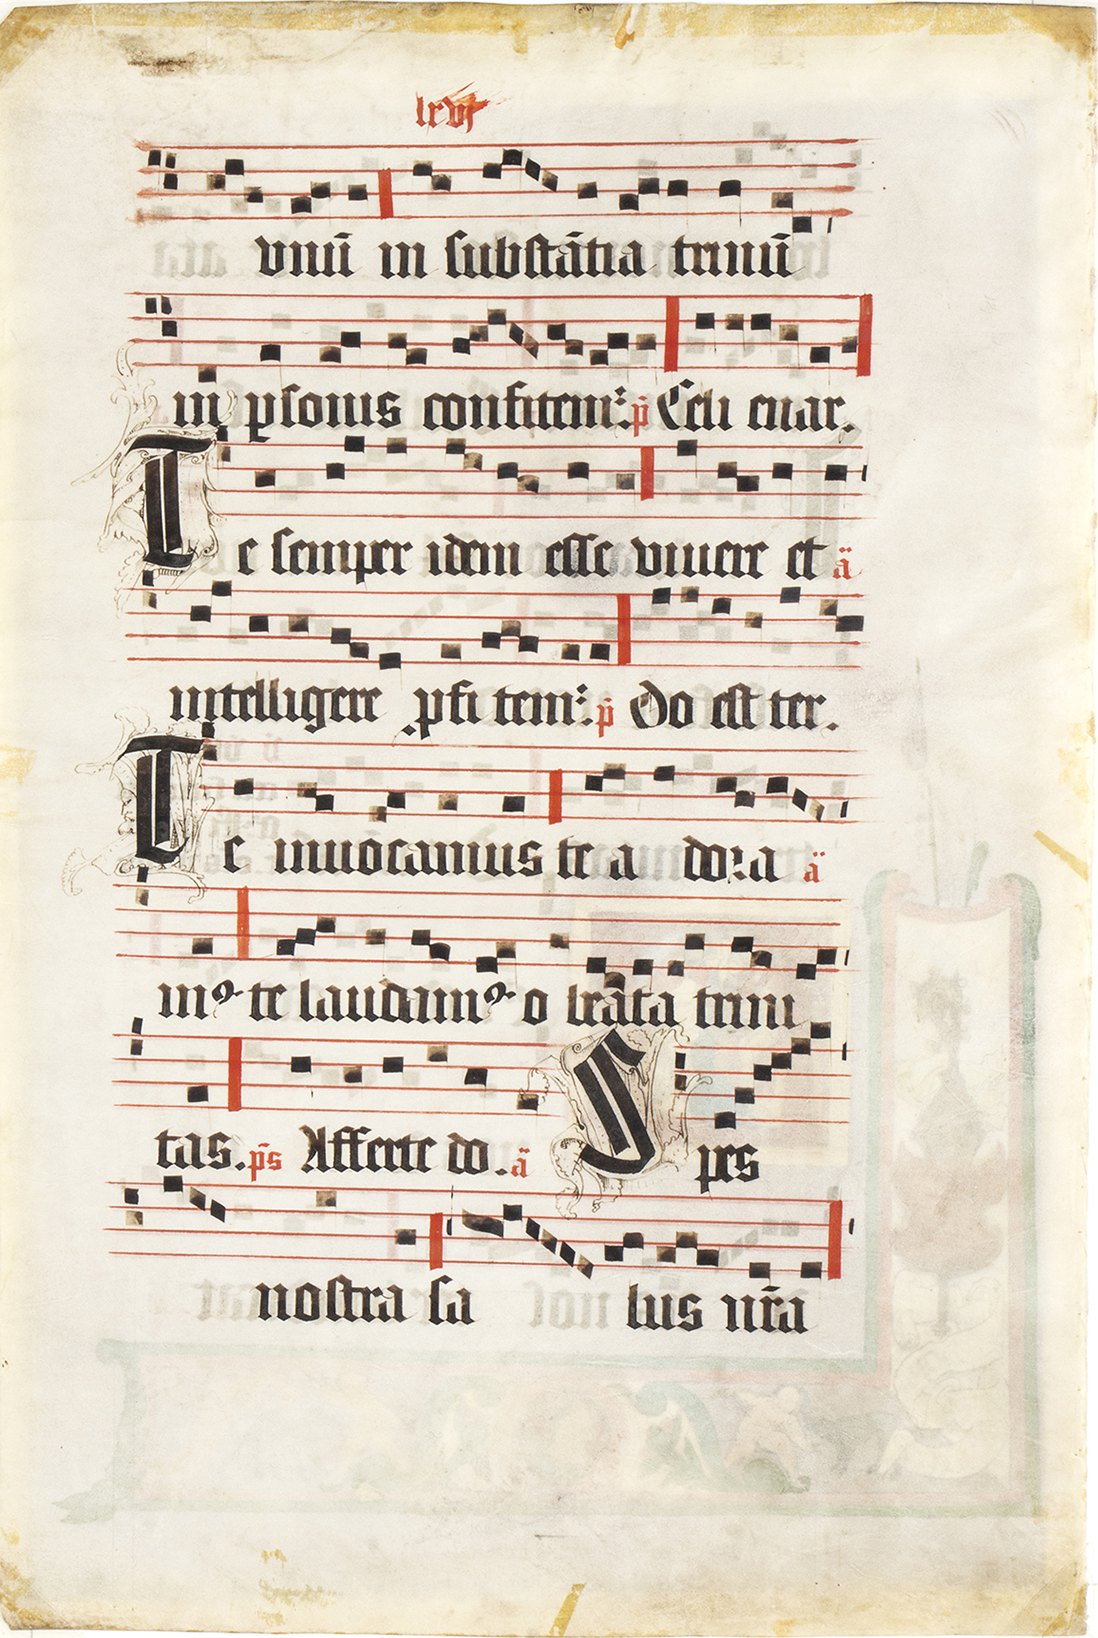 lxvj
vnū in substātia trinū
in ꝑsonis confitemᷣ. p̄ Celi enar.
Te semper idem esse viuere et ā
intelligere ꝓfitemᷣ. p̄ Do est ter.
Te inuocamus te adora ā
mꝰ te laudamꝰ o beata trini
tas. p̄s Afferte do. ā Spes
nostra salus nr̄a